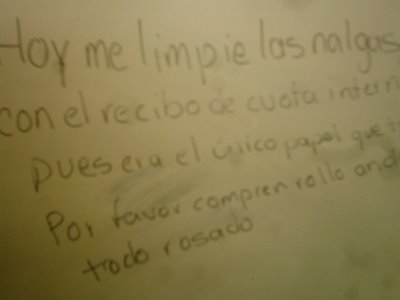 Hoy me limpie las nalgas
con el recibo de cuota intern
pues era el único papel que t
Por favor compren rollo and
trodo rosado